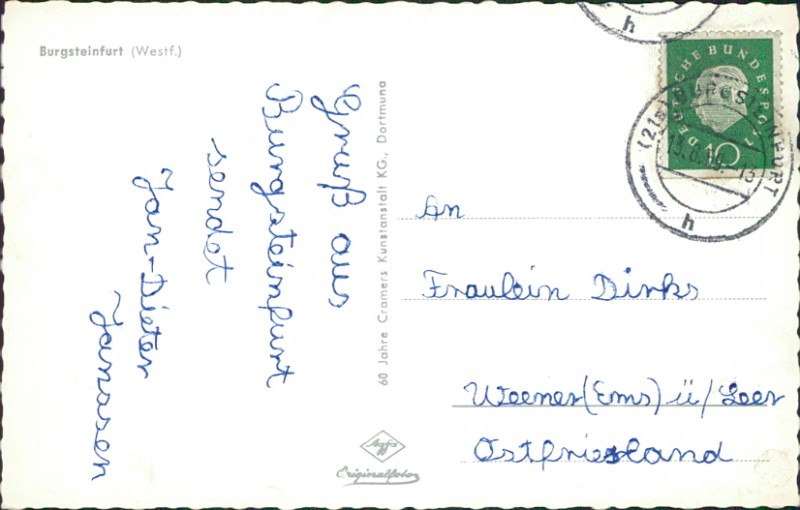 Burgsteinfurt (Westf.)
Gruß aus
Burgsteinfurt
sendet
Jan-Dieter
Janssen
60 Jahre Cramers Kunstanstalt KG., Dortmund
Agfa
Originalfoto
DEUTSCHE BUNDESPOST
10
(21a) BURGSTEINFURT
h
h
An
Fräulein Dirks
Weener (Ems) ü/Leer
Ostfriesland